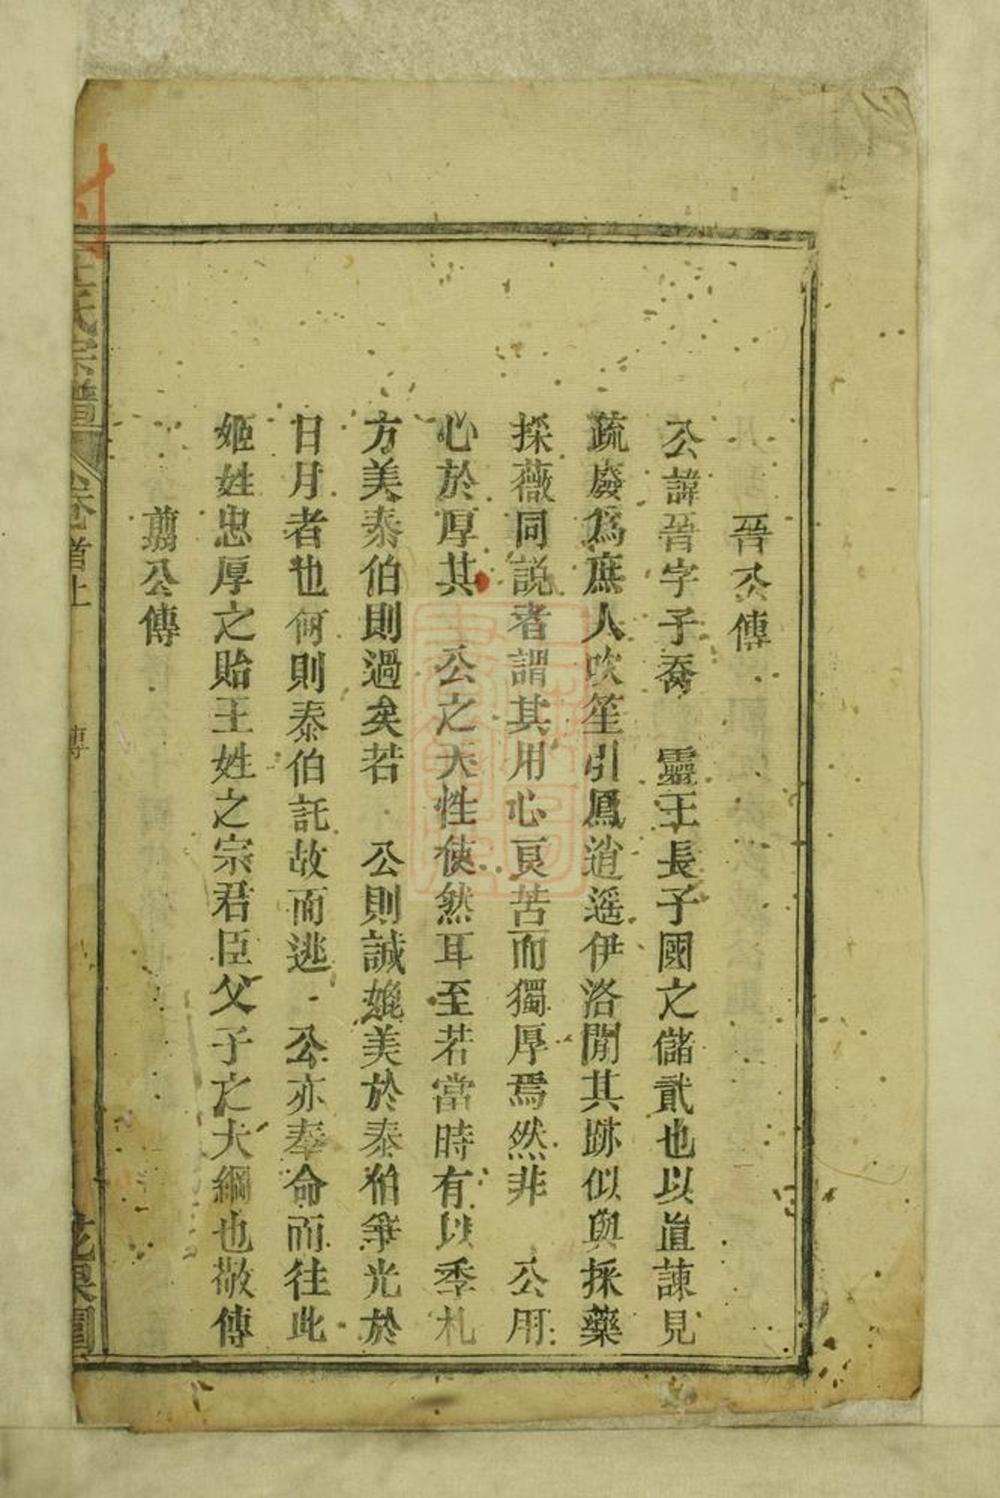 晉公傳
公諱晉字子喬　靈王長子國之儲貳也以直諫見
疏廢爲庶人吹笙引鳳逍遥伊洛閒其跡似與採藥
採薇同説者謂其用心良苦而獨厚焉然非　公用
心於厚其　公之天性使然耳至若當時有以季札
方美泰伯則過矣若　公則誠媲美於泰伯爭光於
日月者也何則泰伯託故而逃　公亦奉命而往此
姬姓忠厚之貽王姓之宗君臣父子之大綱也敬傳
翦公傳
王氏宗譜　卷首上　傳